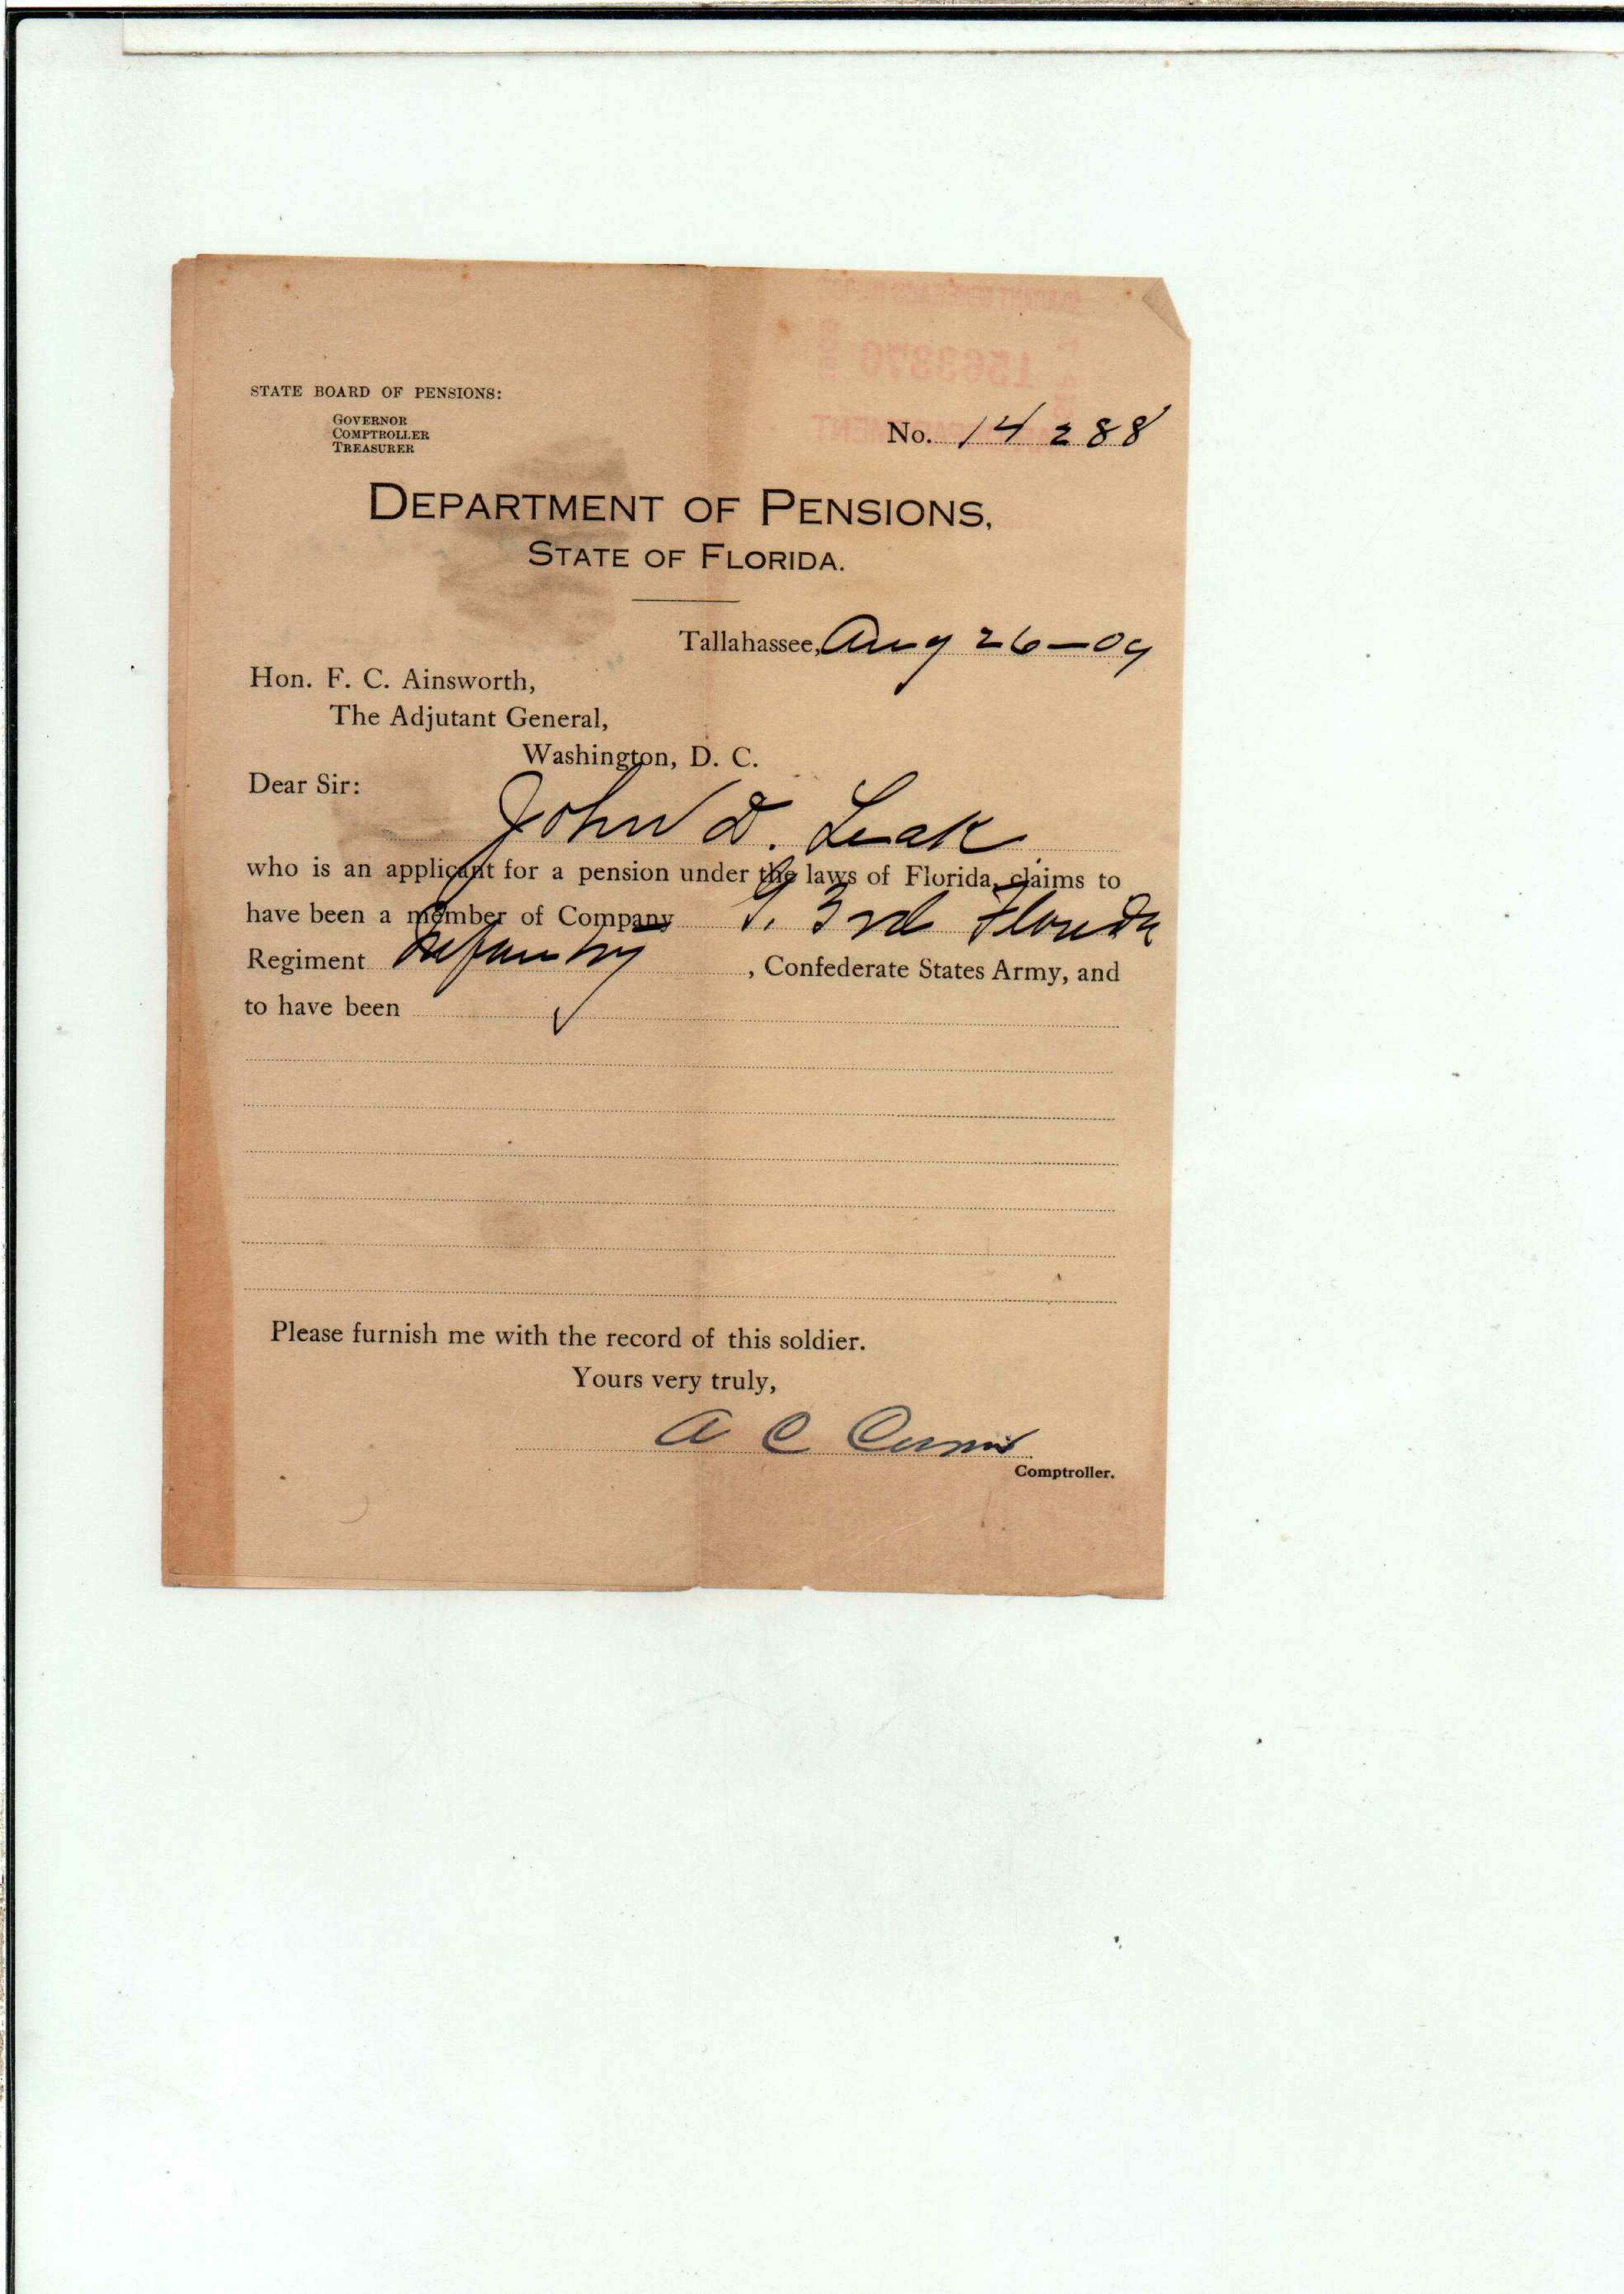 1563870
STATE BOARD OF PENSIONS:
GOVERNOR
COMPTROLLER
TREASURER
No. 14288
DEPARTMENT OF PENSIONS,
STATE OF FLORIDA.
Tallahassee, Aug 26-09
Hon. F. C. Ainsworth,
The Adjutant General,
Washington, D. C.
Dear Sir:
John D. Leak
who is an applicant for a pension under the laws of Florida, claims to
have been a member of Company 3rd Florida
Regiment Infantry, Confederate States Army, and
to have been
Please furnish me with the record of this soldier.
Yours very truly,
A C
Comptroller.